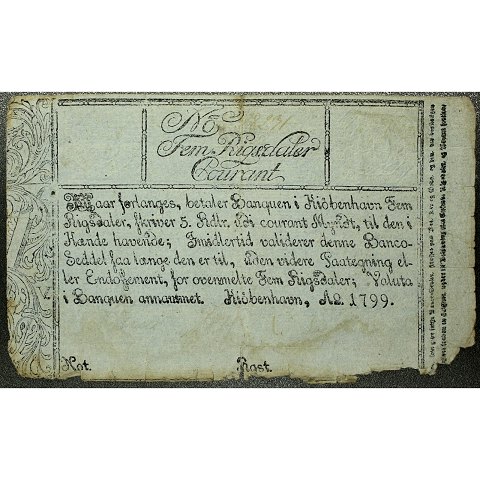 No
Fem Rigsdaler
Courant
Naar forlanges, betaler Banquen i Kiøbenhavn Fem
Rigsdaler, skriver 5. Rdlr. udi courant Myndt, til den i
Hænde havende; Imidlertid validerer denne Banco-
Seddel saa længe den er til, uden videre Paategning el-
ler Endossement, for ovenmelte Fem Rigsdaler; Valuta
i Banquen annammet. Kiøbenhavn, Ao. 1799.
Not. Rgst.